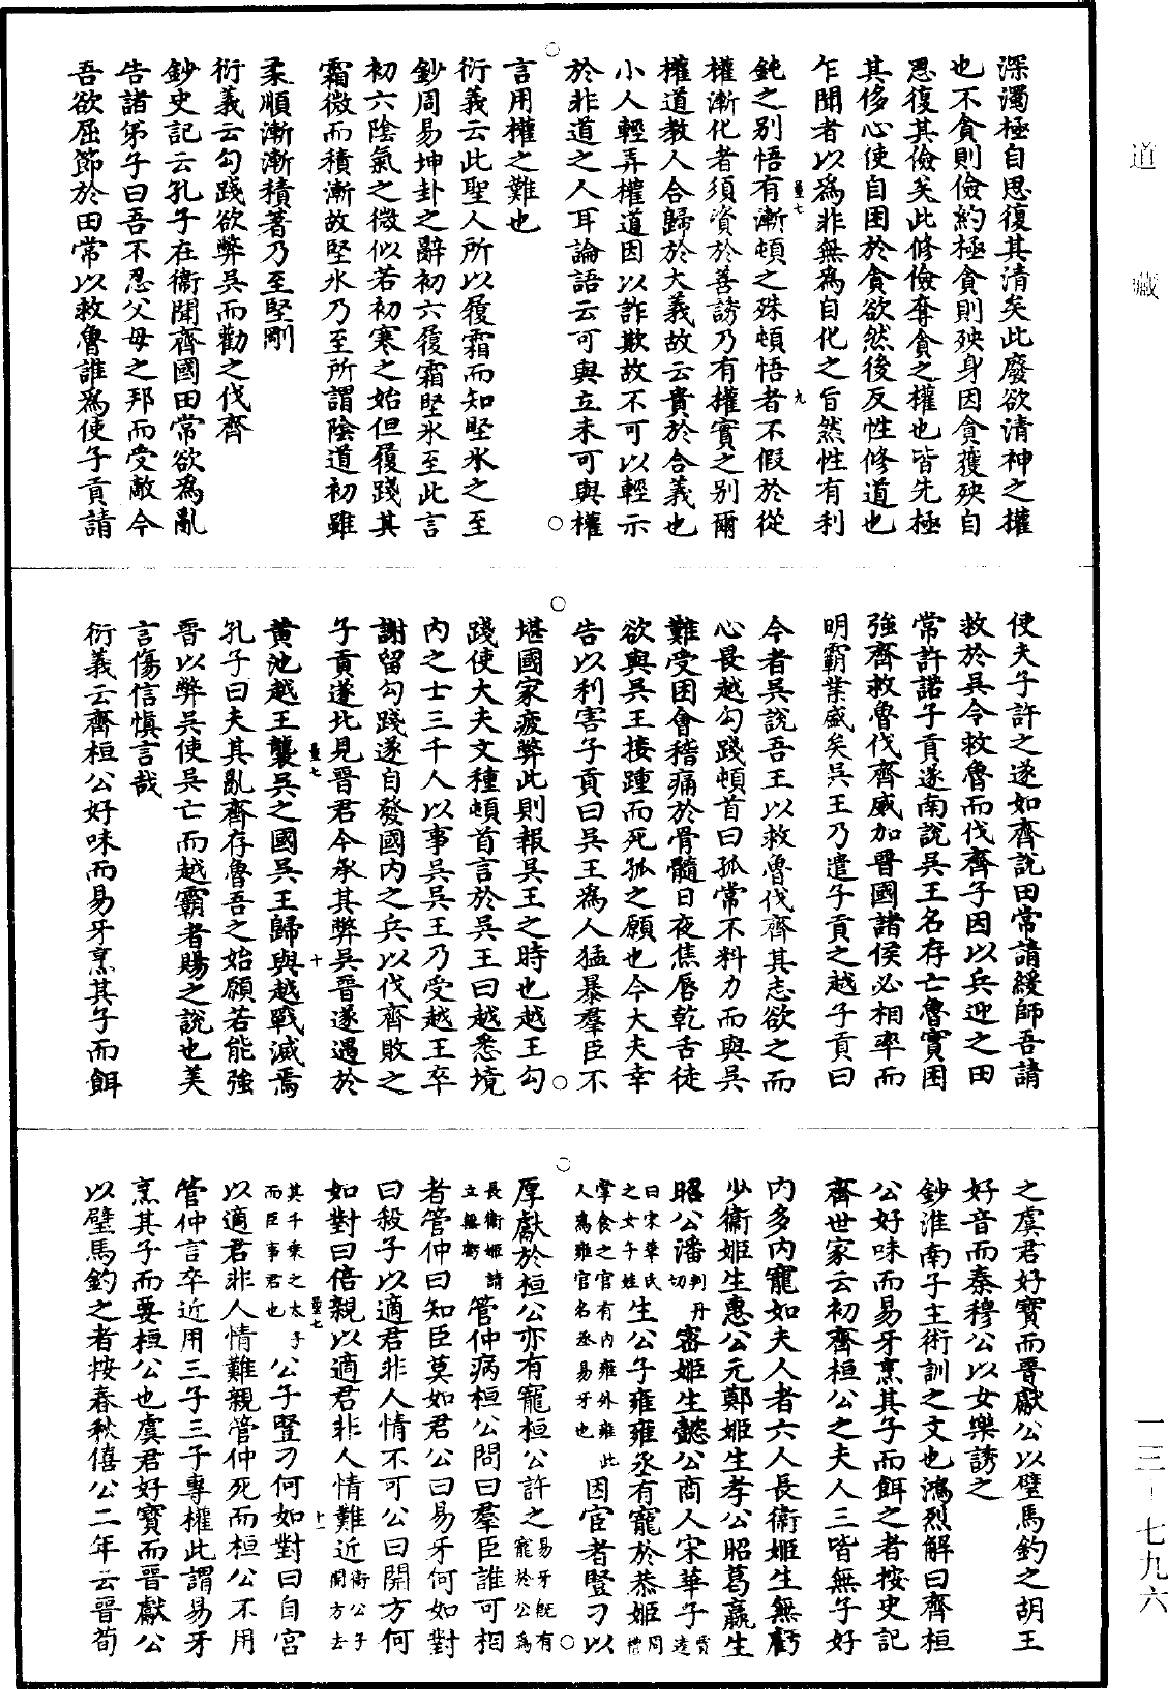 道藏
深濁極自思復其清矣此廢欲清神之權
也不貪則儉約極貪則殃身因貪獲殃自
思復其儉矣此修儉奪貪之權也皆先極
其侈心使自困於貪欲然後反性修道也
乍聞者以為非無為自化之旨然性有利
量七 九
鈍之別悟有漸頓之殊頓悟者不假於從
權漸化者須資於善誘乃有權實之別爾
權道教人合歸於大義故云貴於合義也
小人輕弄權道因以詐欺故不可以輕示
於非道之人耳論語云可與立未可與權
言用權之難也
衍義云此聖人所以履霜而知堅氷之至
鈔周易坤卦之辭初六履霜堅氷至此言
初六陰氣之微似若初寒之始但履踐其
霜微而積漸故堅氷乃至所謂陰道初雖
柔順漸漸積著乃至堅剛
衍義云勾踐欲弊吳而勸之伐齊
鈔史記云孔子在衛聞齊國田常欲為亂
告諸弟子曰吾不忍父母之邦而受敵今
吾欲屈節於田常以救魯誰為使子貢請
使夫子許之遂如齊說田常請緩師吾請
救於吳令救魯而伐齊子因以兵迎之田
常許諾子貢遂南說吳王名存亡魯實困
強齊救魯伐齊威加晉國諸侯必相率而
明霸業盛矣吳王乃遣子貢之越子貢曰
今者吳說吾王以救魯伐齊其志欲之而
心畏越勾踐頓首曰孤常不料力而與吳
難受困會稽痛於骨髓日夜焦唇乾舌徒
欲與吳王接踵而死孤之願也今大夫幸
告以利害子貢曰吳王為人猛暴羣臣不
堪國家疲弊此則報吳王之時也越王勾
踐使大夫文種頓首言於吳王曰越悉境
內之士三千人以事吳吳王乃受越王卒
謝留勾踐遂自發國內之兵以伐齊敗之
子貢遂北見晉君令承其弊吳晉遂遇於
量七 十
黃池越王襲吳之國吳王歸與越戰滅焉
孔子曰夫其亂齊存魯吾之始願若能強
晉以弊吳使吳亡而越霸者賜之說也美
言傷信慎言哉
衍義云齊桓公好味而易牙烹其子而餌
之虞君好寶而晉獻公以璧馬釣之胡王
好音而秦穆公以女樂誘之
鈔淮南子主術訓之文也鴻烈解曰齊桓
公好味而易牙烹其子而餌之者按史記
齊世家云初齊桓公之夫人三皆無子好
內多內寵如夫人者六人長衛姬生無虧
少衛姬生惠公元鄭姬生孝公昭葛嬴生
昭公潘判丹切密姬生懿公商人宋華子賈逵
曰宋華氏之女子姓生公子雍雍丞有寵於恭姬周禮
掌食之官有內雍外雍此人為雍官名丞易牙也因宦者豎刁以
厚獻於桓公亦有寵桓公許之易牙既有寵於公為
長衛姬請立無虧管仲病桓公問曰羣臣誰可相
者管仲曰知臣莫如君公曰易牙何如對
曰殺子以適君非人情不可公曰開方何
如對曰倍親以適君非人情難近衛公子開方去
量七 十一
其千乘之太子而臣事君也公子豎刁何如對曰自宮
以適君非人情難親管仲死而桓公不用
管仲言卒近用三子三子專權此謂易牙
烹其子而要桓公也虞君好寶而晉獻公
以璧馬釣之者按春秋僖公二年云晉荀
一三-七九六